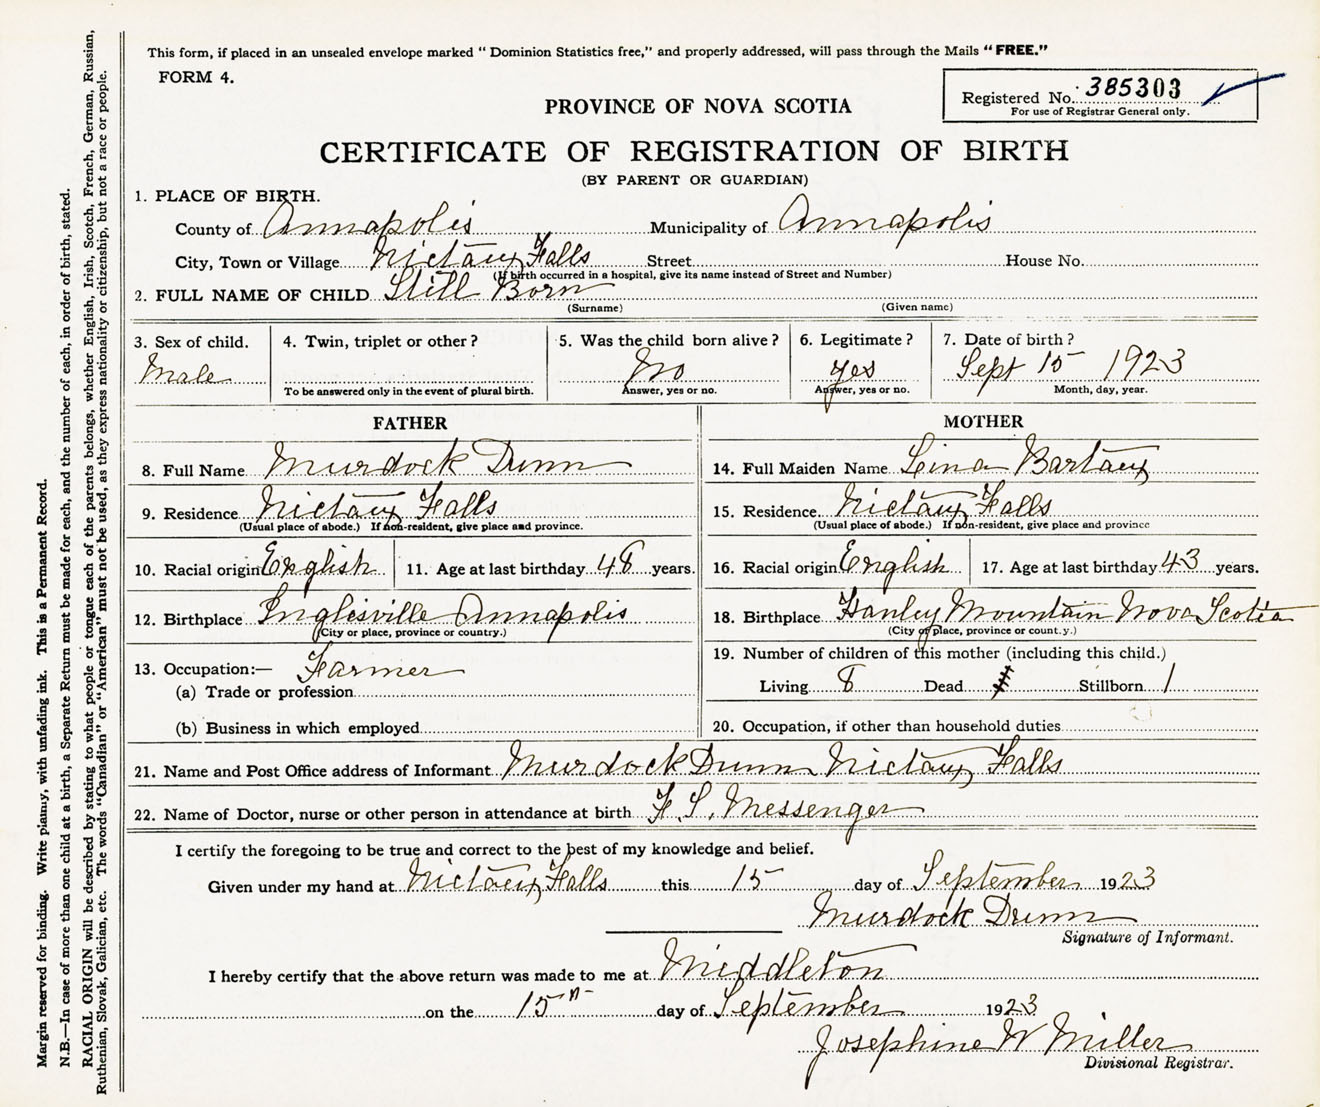 This form, if placed in an unsealed envelope marked " Dominion Statistics free," and properly addressed, will pass through the Mails " FREE."
FORM 4.
Registered No. 385303
For use of Registrar General only.
PROVINCE OF NOVA SCOTIA
CERTIFICATE OF REGISTRATION OF BIRTH
(BY PARENT OR GUARDIAN)
1. PLACE OF BIRTH.
County of Annapolis Municipality of Annapolis
City, Town or Village Nictaux Falls Street House No.
(If birth occurred in a hospital, give its name instead of Street and Number)
2. FULL NAME OF CHILD Still Born
(Surname) (Given name)
3. Sex of child. 4. Twin, triplet or other? 5. Was the child born alive? 6. Legitimate? 7. Date of birth?
Male No yes Sept 15 1923
To be answered only in the event of plural birth. Answer, yes or no. Answer, yes or no. Month, day, year.
FATHER MOTHER
8. Full Name Murdock Dunn 14. Full Maiden Name Lina Bartaux
9. Residence Nictaux Falls 15. Residence. Nictaux Falls
(Usual place of abode.) If non-resident, give place and province. (Usual place of abode.) If non-resident, give place and province
10. Racial origin English 11. Age at last birthday 48 years. 16. Racial origin English 17. Age at last birthday 43 years.
12. Birthplace Inglisville Annapolis 18. Birthplace Hanley Mountain Nova Scotia
(City or place, province or country.) (City or place, province or count.y.)
13. Occupation:— Farmer 19. Number of children of this mother (including this child.)
(a) Trade or profession Living 8 Dead Stillborn 1
(b) Business in which employed 20. Occupation, if other than household duties
21. Name and Post Office address of Informant Murdock Dunn Nictaux Falls
22. Name of Doctor, nurse or other person in attendance at birth F. S. Messenger
I certify the foregoing to be true and correct to the best of my knowledge and belief.
Given under my hand at Nictaux Falls this 15 day of September 1923
Murdock Dunn
Signature of Informant.
I hereby certify that the above return was made to me at Middleton
on the 15th day of September 1923
Josephine W Miller
Divisional Registrar.
Margin reserved for binding. Write plainly, with unfading ink. This is a Permanent Record.
N.B.—In case of more than one child at a birth, a Separate Return must be made for each, and the number of each, in order of birth, stated.
RACIAL ORIGIN will be described by stating to what people or tongue each of the parents belongs, whether English, Irish, Scotch, French, German, Russian,
Ruthenian, Slovak, Galician, etc. The words "Canadian" or "American" must not be used, as they express nationality or citizenship, but not a race or people.